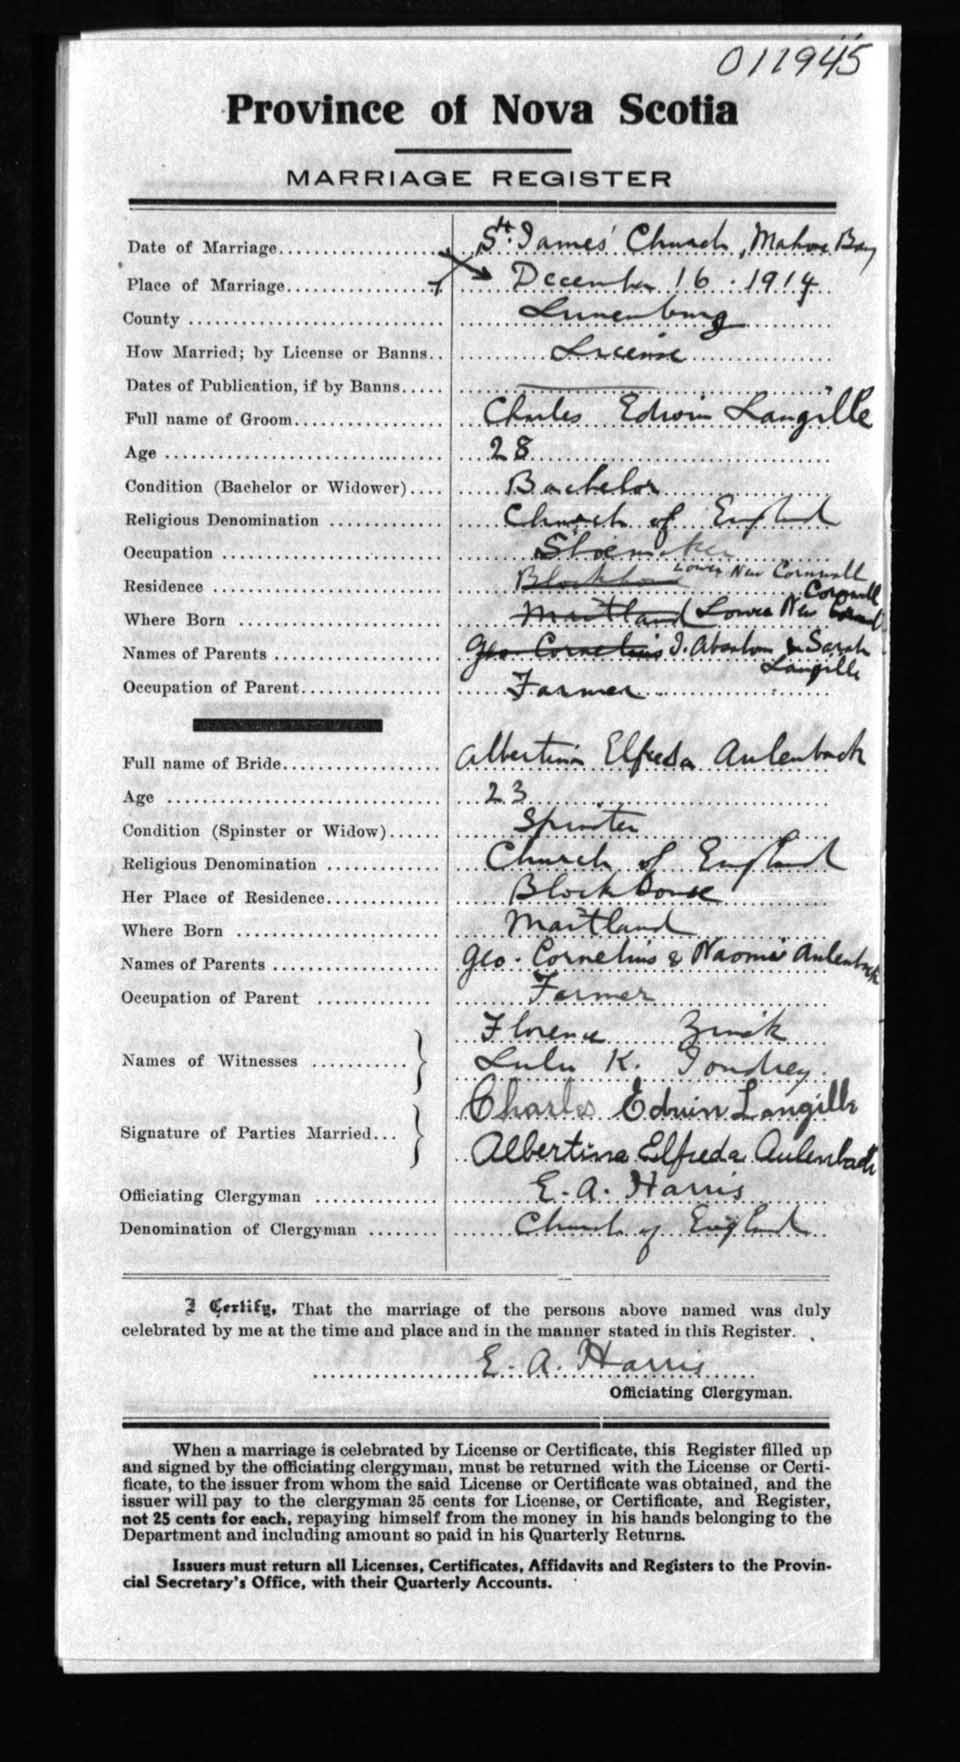 011945
Province of Nova Scotia
MARRIAGE REGISTER
Date of Marriage St. James' Church, Mahone Bay
Place of Marriage December 16. 1914
County Lunenburg
How Married; by License or Banns License
Dates of Publication, if by Banns
Full name of Groom Charles Edwin Langille
Age 28
Condition (Bachelor or Widower) Bachelor
Religious Denomination Church of England
Occupation Shoemaker
Residence Blockhouse Lower New Cornwall
Cornwall
Where Born Maitland Lower New
Names of Parents Geo. Cornelius J. Absalom & Sarah
Langille
Occupation of Parent Farmer
Full name of Bride Albertina Elfreda Aulenback
Age 23
Condition (Spinster or Widow) Spinster
Religious Denomination Church of England
Her Place of Residence Block House
Where Born Maitland
Names of Parents Geo. Cornelius & Naomi Aulenback
Occupation of Parent Farmer
Florence Zinck
Names of Witnesses } Lulu K.
Charles Edwin Langille
Signature of Parties Married }
Albertina Elfreda Aulenback
Officiating Clergyman E. A. Harris
Denomination of Clergyman Church of England
I Certify, That the marriage of the persons above named was duly
celebrated by me at the time and place and in the manner stated in this Register.
E. A. Harris
Officiating Clergyman.
When a marriage is celebrated by License or Certificate, this Register filled up
and signed by the officiating clergyman, must be returned with the License or Certi-
ficate, to the issuer from whom the said License or Certificate was obtained, and the
issuer will pay to the clergyman 25 cents for License, or Certificate, and Register,
not 25 cents for each, repaying himself from the money in his hands belonging to the
Department and including amount so paid in his Quarterly Returns.
Issuers must return all Licenses, Certificates, Affidavits and Registers to the Provin-
cial Secretary's Office, with their Quarterly Accounts.